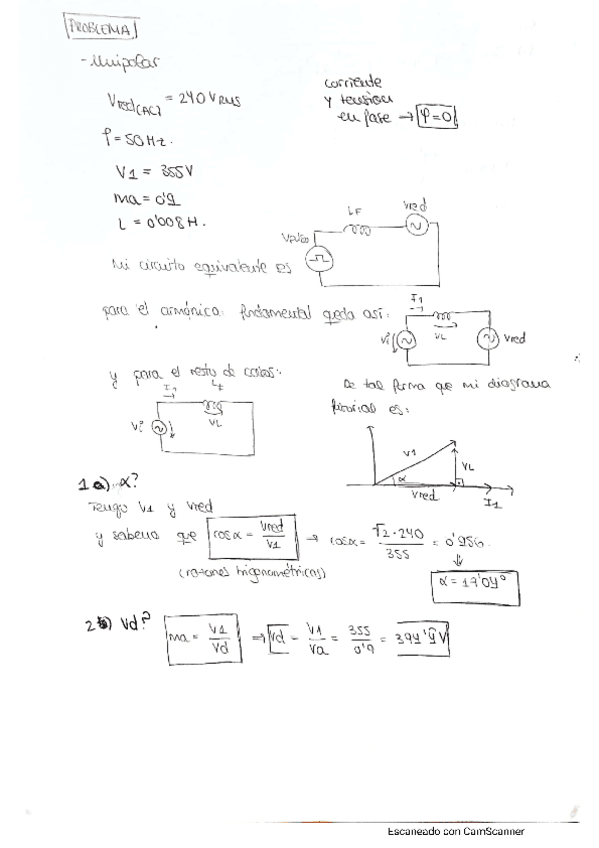 PROBLEMA
- Unipolar
Vred(AC) = 240 VRMS
corriente
y tension
en fase → φ=0
f = 50 Hz.
V1 = 355V
ma = 0'9
L = 0'008 H.
LF
Vred
Mi circuito equivalente es
para el armónico fundamental queda así:
I1
VL
Vred
y para el resto de casos:
I1
LF
VL
De tal forma que mi diagrama
fasorial es:
V1
VL
α
Vred
I1
1 a) α?
Tengo V1 y Vred
y sabemos que cosα = Vred/V1 → cosα = √2·240/355 = 0'956.
(razones trigonométricas)
α = 17'04º
2 b) Vd?
ma = V1/Vd ⇒ Vd = V1/Va = 355/0'9 = 394'4 V
Escaneado con CamScanner